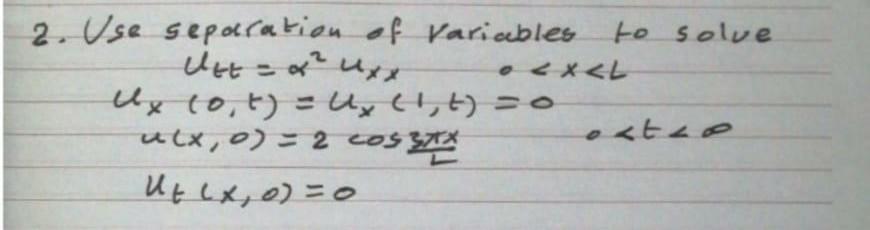 2. Use separation of variables to solve
u_tt = α² u_xx   0 < x < L
u_x (0, t) = u_x (1, t) = 0
u(x, 0) = 2 cos 3πx/L   0 < t < ∞
u_t (x, 0) = 0